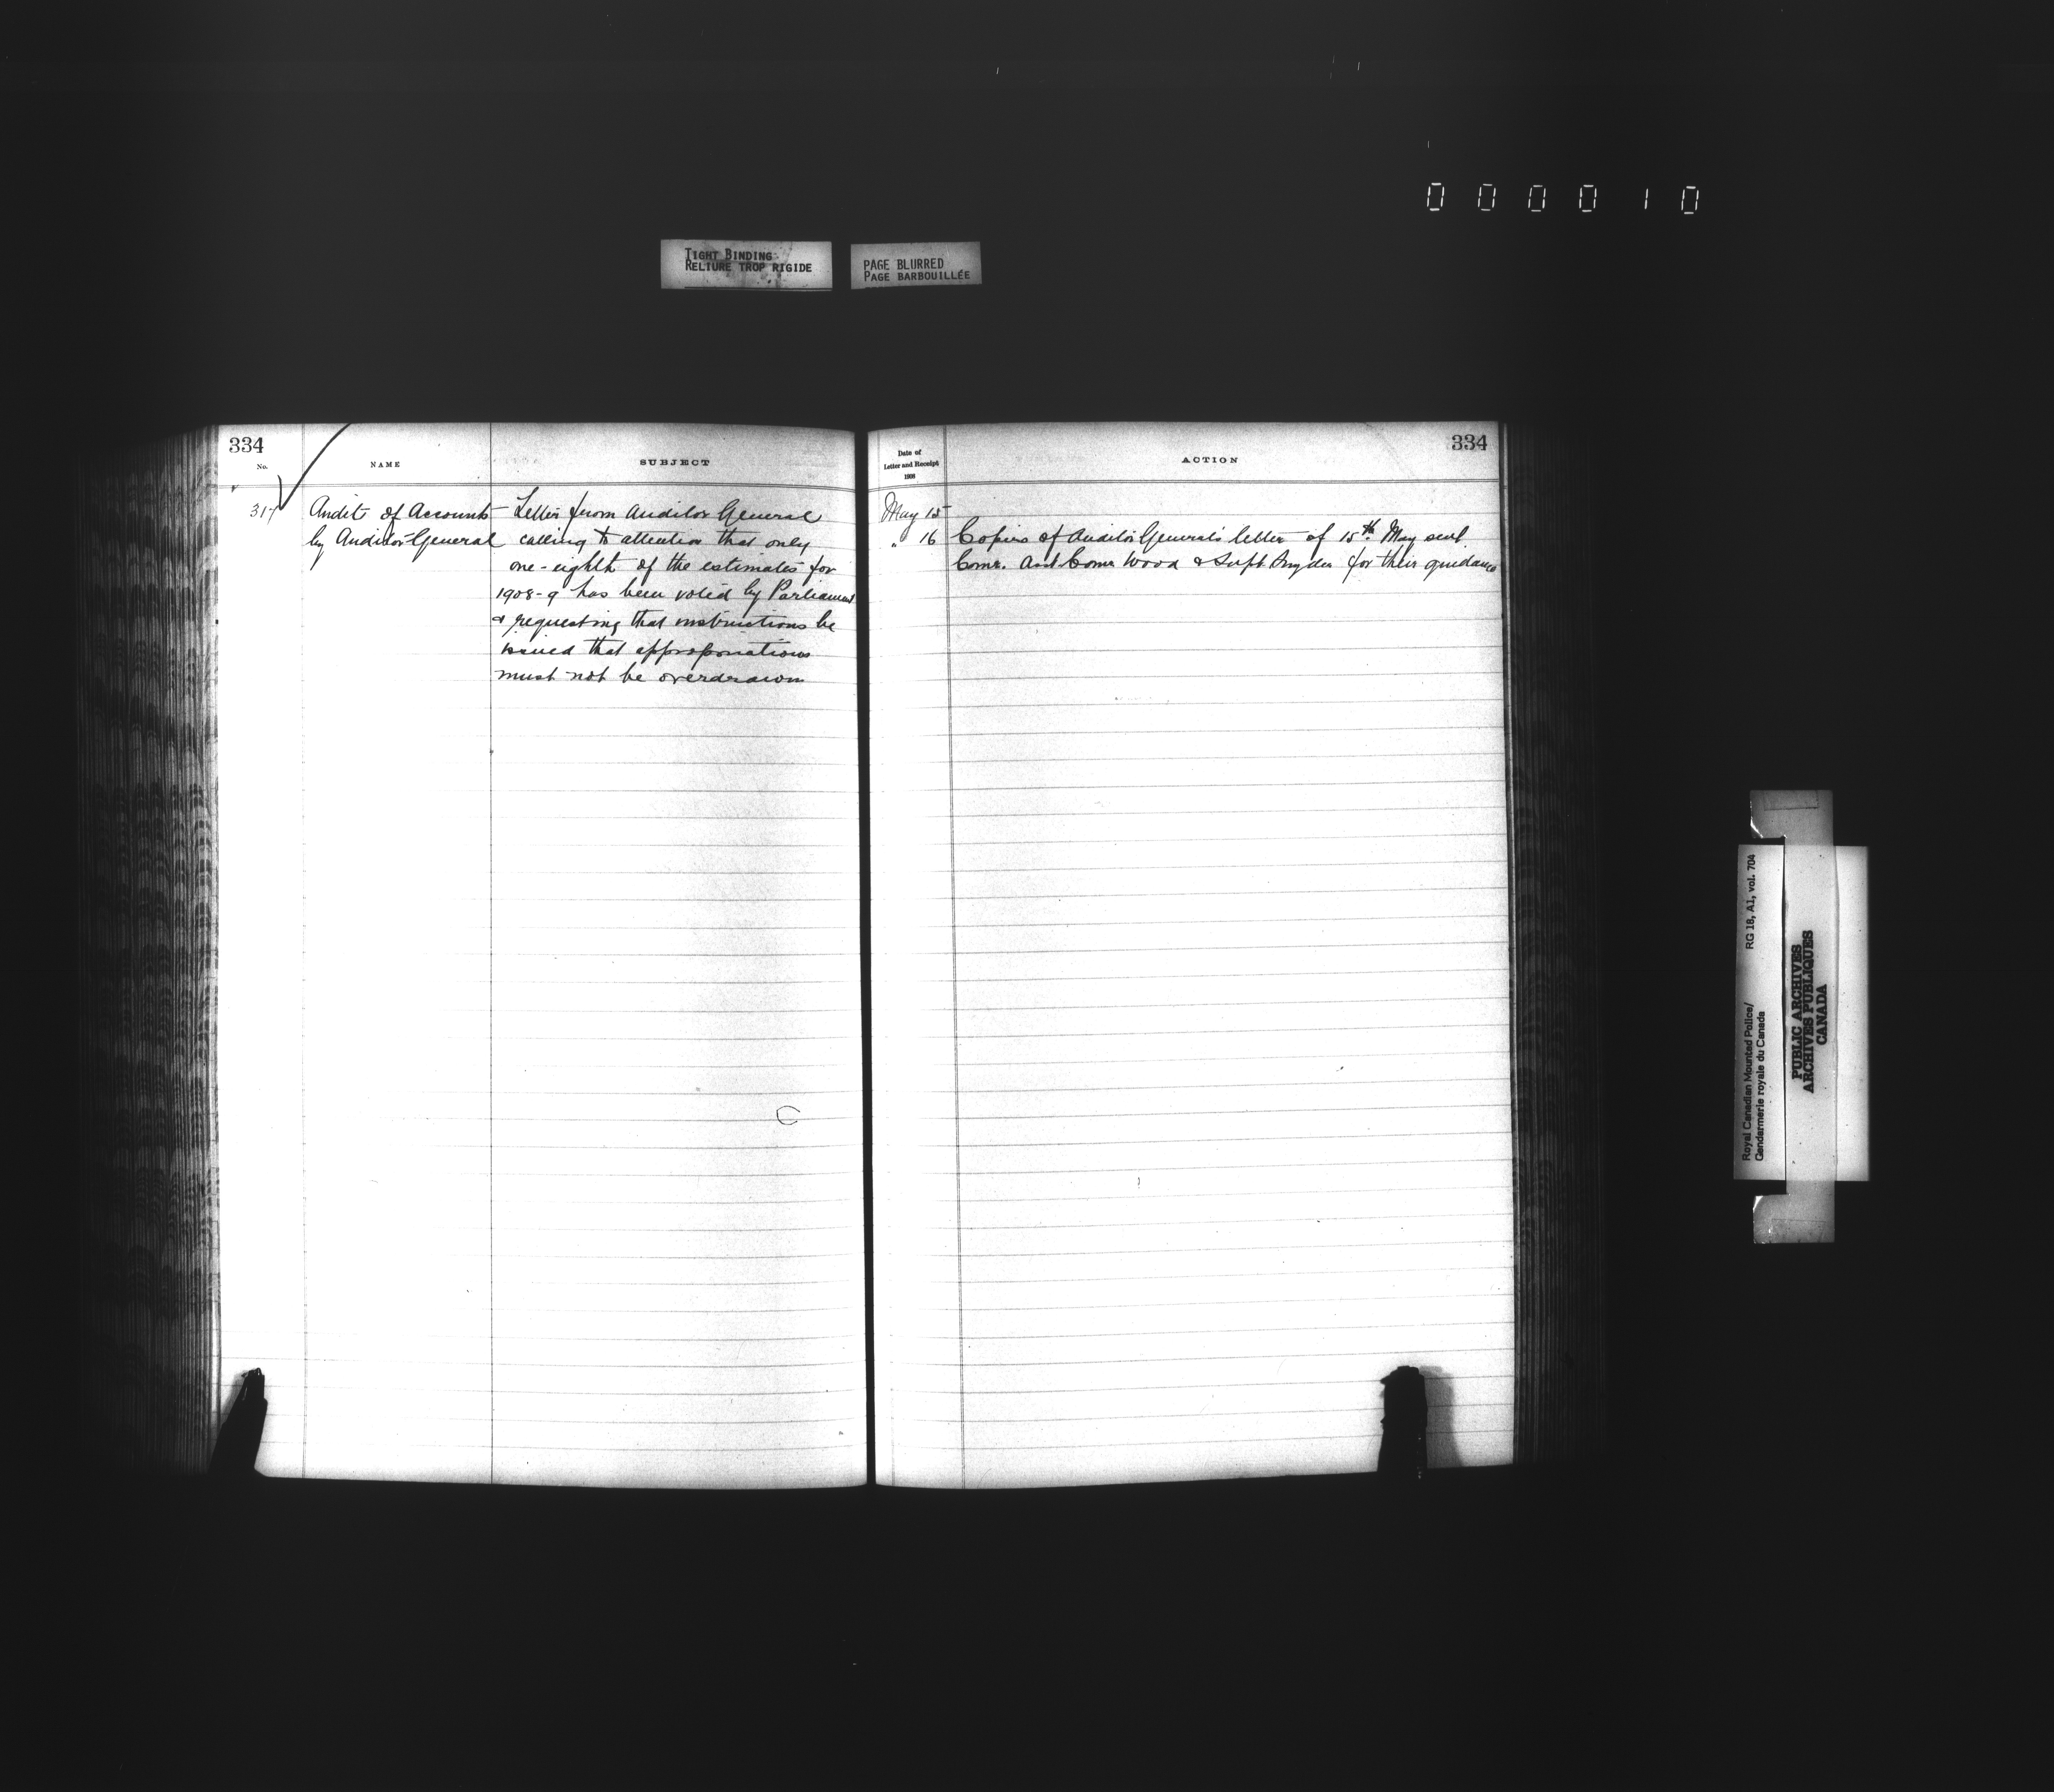 000010
TIGHT BINDING
RELIURE TROP RIGIDE
PAGE BLURRED
PAGE BARBOUILLÉE
334
No.
NAME
SUBJECT
317
Audit of Accounts
by Auditor General
Letter from Auditor General
calling to attention that only
one-eighth of the estimates for
1908-9 has been voted by Parliament
& requesting that instructions be
issued that appropriations
must not be overdrawn
334
Date of
Letter and Receipt
1908
ACTION
May 15
" 16
Copies of Auditor General's letter of 15th May sent
Comr. Asst Comr Wood & Supt Snyder for their guidance
Royal Canadian Mounted Police/
Gendarmerie royale du Canada
RG 18, A1, vol. 704
PUBLIC ARCHIVES
ARCHIVES PUBLIQUES
CANADA